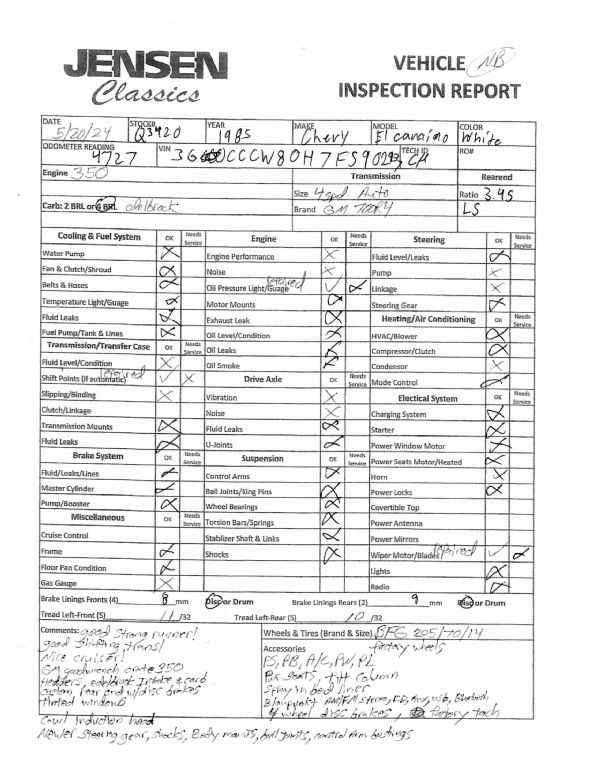 JENSEN
Classics
VEHICLE NB
INSPECTION REPORT
DATE 5/20/24 STOCK# Q3420 YEAR 1985 MAKE Chevy MODEL El camino COLOR White
ODOMETER READING 4727 VIN TECH ID RO#
Engine 350 Transmission Rearend
Size 4 spd Auto Ratio 3.45
Carb: 2 BRL or 4 BRL edelbrock Brand GM 700R4 LS
Cooling & Fuel System OK Needs Service Engine OK Needs Service Steering OK Needs Service
Water Pump Engine Performance Fluid Level/Leaks
Fan & Clutch/Shroud Noise Pump
Belts & Hoses Oil Pressure Light/Guage repaired Linkage
Temperature Light/Guage Motor Mounts Steering Gear
Fluid Leaks Exhaust Leak Heating/Air Conditioning OK Needs Service
Fuel Pump/Tank & Lines Oil Level/Condition HVAC/Blower
Transmission/Transfer Case OK Needs Service Oil Leaks Compressor/Clutch
Fluid Level/Condition Oil Smoke Condensor
Shift Points (if automatic) repaired Drive Axle OK Needs Service Mode Control
Slipping/Binding Vibration Electical System OK Needs Service
Clutch/Linkage Noise Charging System
Transmission Mounts Fluid Leaks Starter
Fluid Leaks U-Joints Power Window Motor
Brake System OK Needs Service Suspension OK Needs Service Power Seats Motor/Heated
Fluid/Leaks/Lines Control Arms Horn
Master Cylinder Ball Joints/King Pins Power Locks
Pump/Booster Wheel Bearings Covertible Top
Miscellaneous OK Needs Service Torsion Bars/Springs Power Antenna
Cruise Control Stablizer Shaft & Links Power Mirrors
Frame Shocks Wiper Motor/Blades repaired
Floor Pan Condition Lights
Gas Gauge Radio
Brake Linings Fronts (4) 8 mm Disc or Drum Brake Linings Rears (2) 9 mm Disc or Drum
Tread Left-Front (5) 11 /32 Tread Left-Rear (5) 10 /32
Comments: good strong runner!
good shifting trans!
Nice cruiser!
GM goodwrench crate 350
Headers, edelbrock Intake & carb
custom rear end w/disc brakes
tinted windows
Cowl Induction hood
Newer steering gear, shocks, Body mounts, ball joints, control Arm bushings
Wheels & Tires (Brand & Size) BFG 205/70/14
factory wheels
Accessories
PS, PB, A/C, PW, PL
Pwr seats, tilt column
Spray in bed liner
Blaupunkt AM/FM stereo, CD, Aux, usb, Bluetooth
4 wheel disc brakes, factory tach